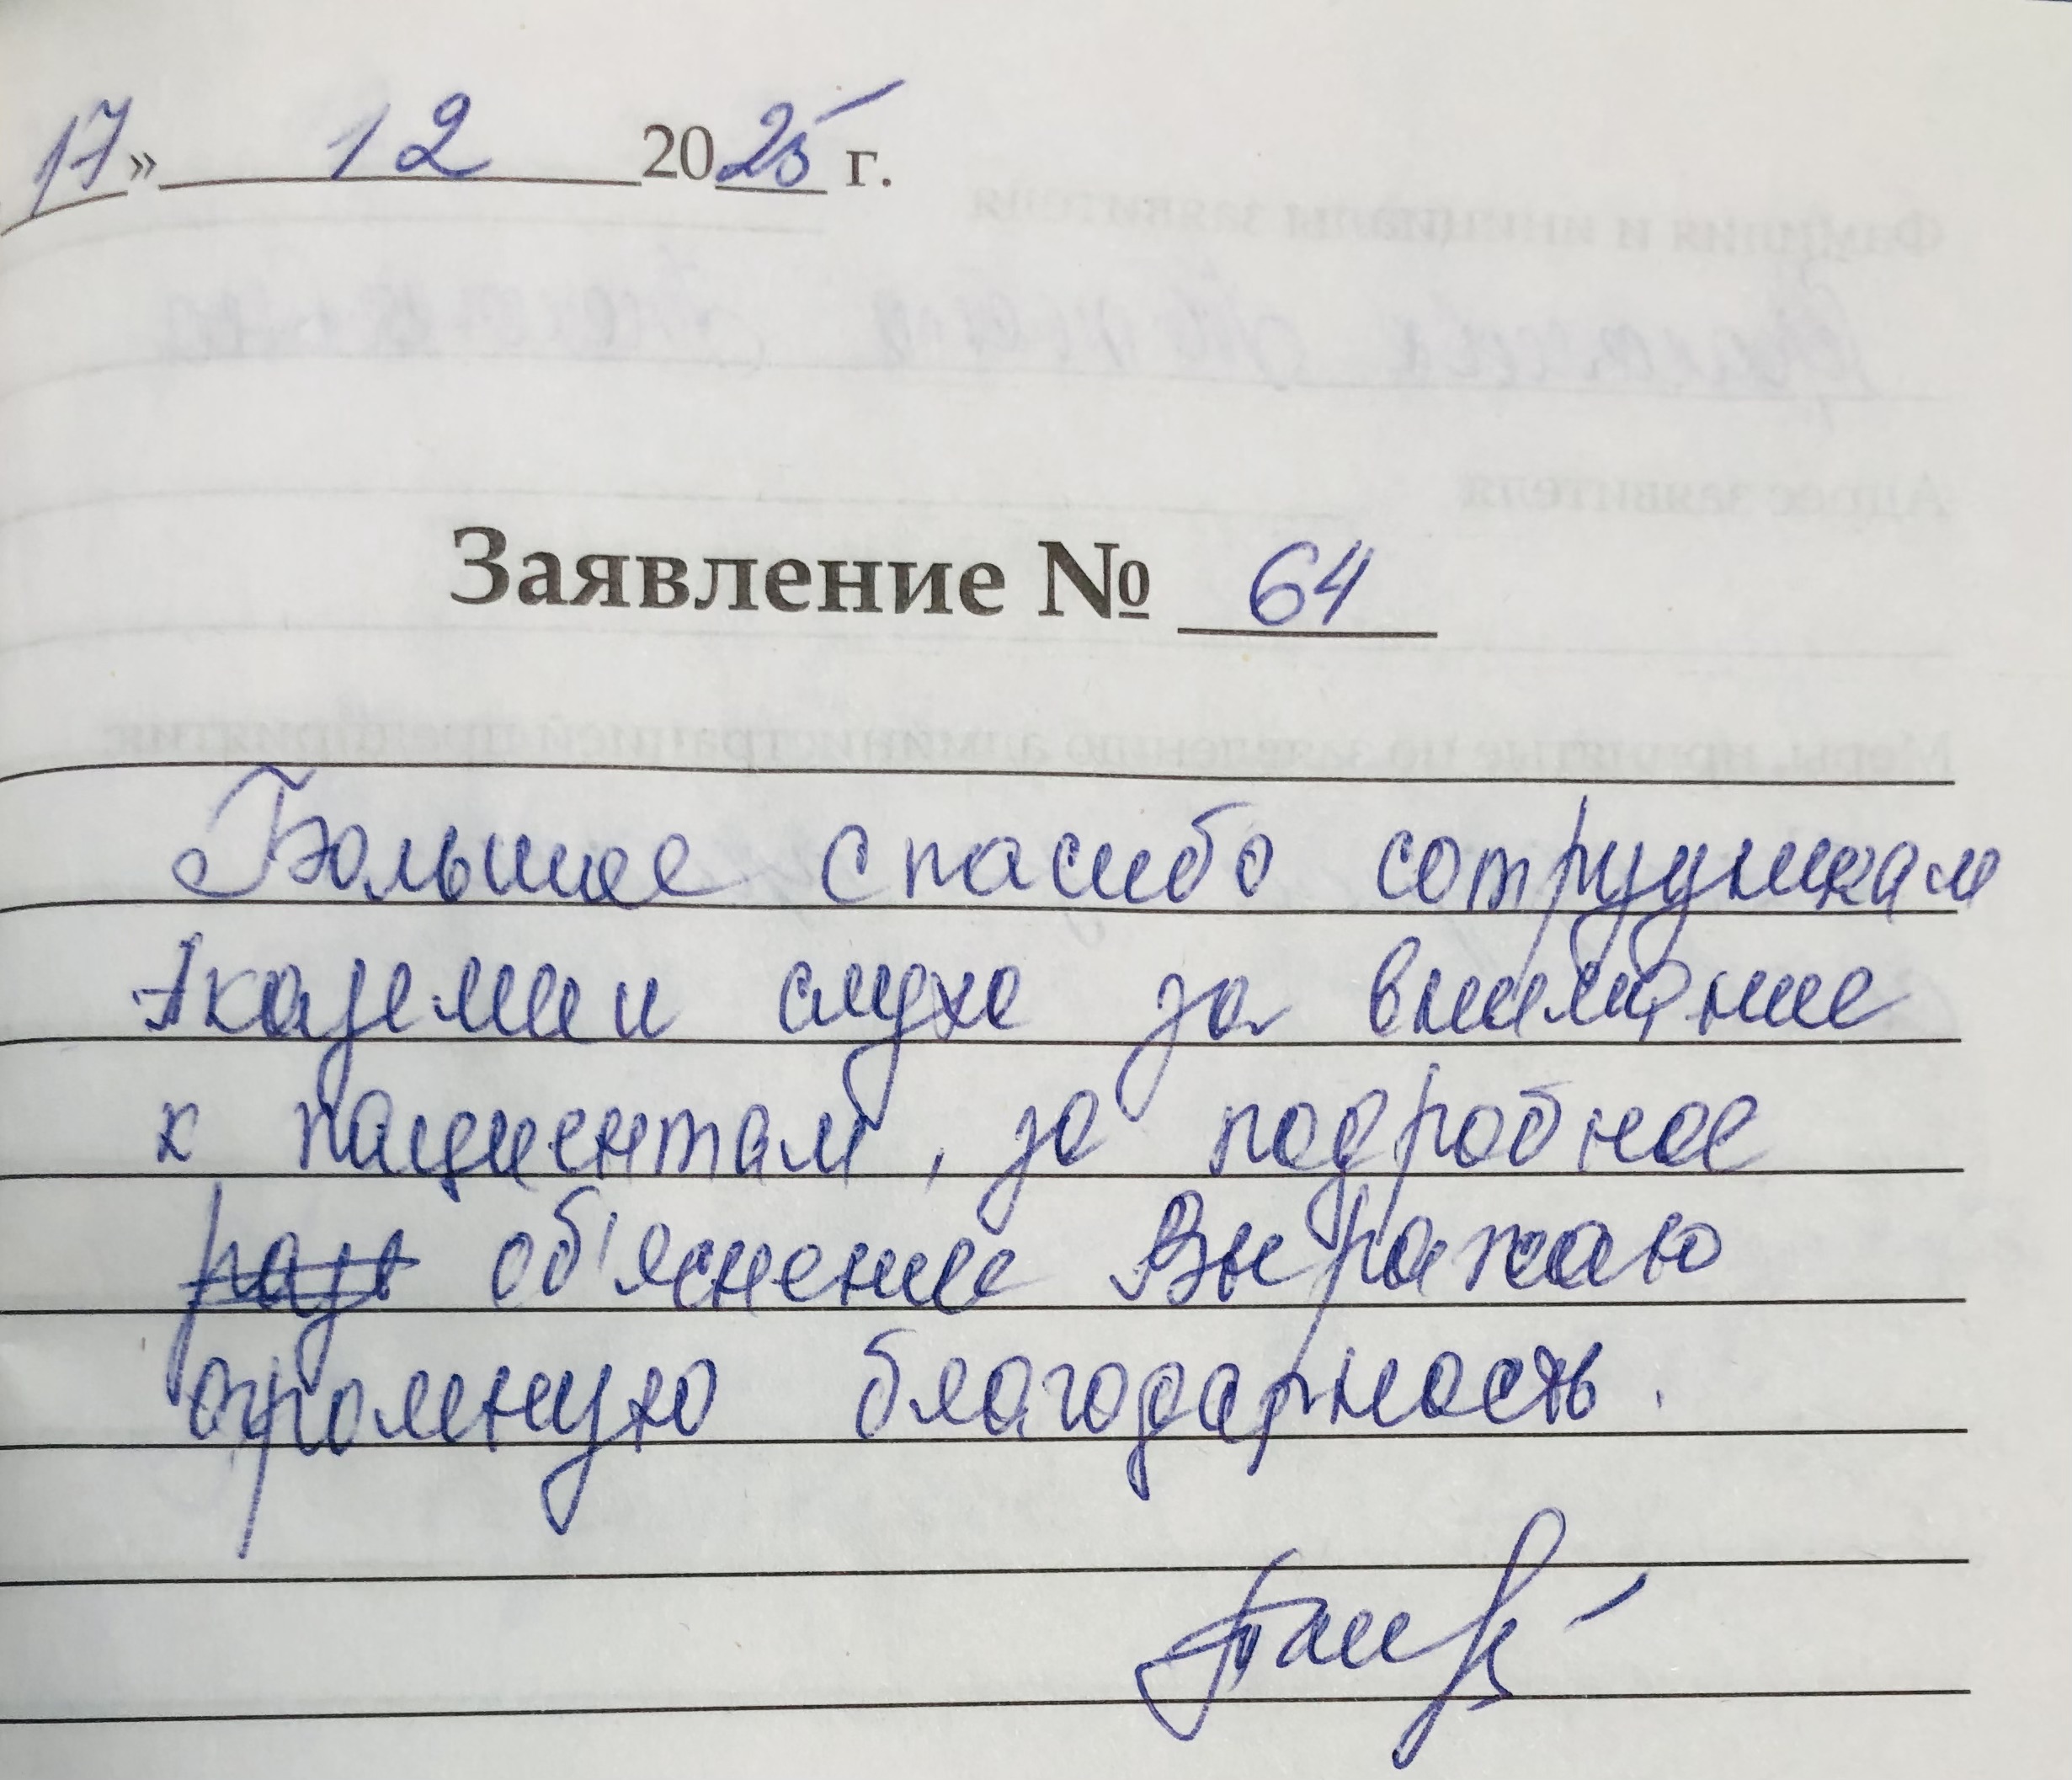 17» 12 2025 г.
Заявление № 64
Большое спасибо сотрудникам
Академии слуха за внимание
к пациентам, за подробное
разъ об'яснение Выражаю
огромную благодарность.